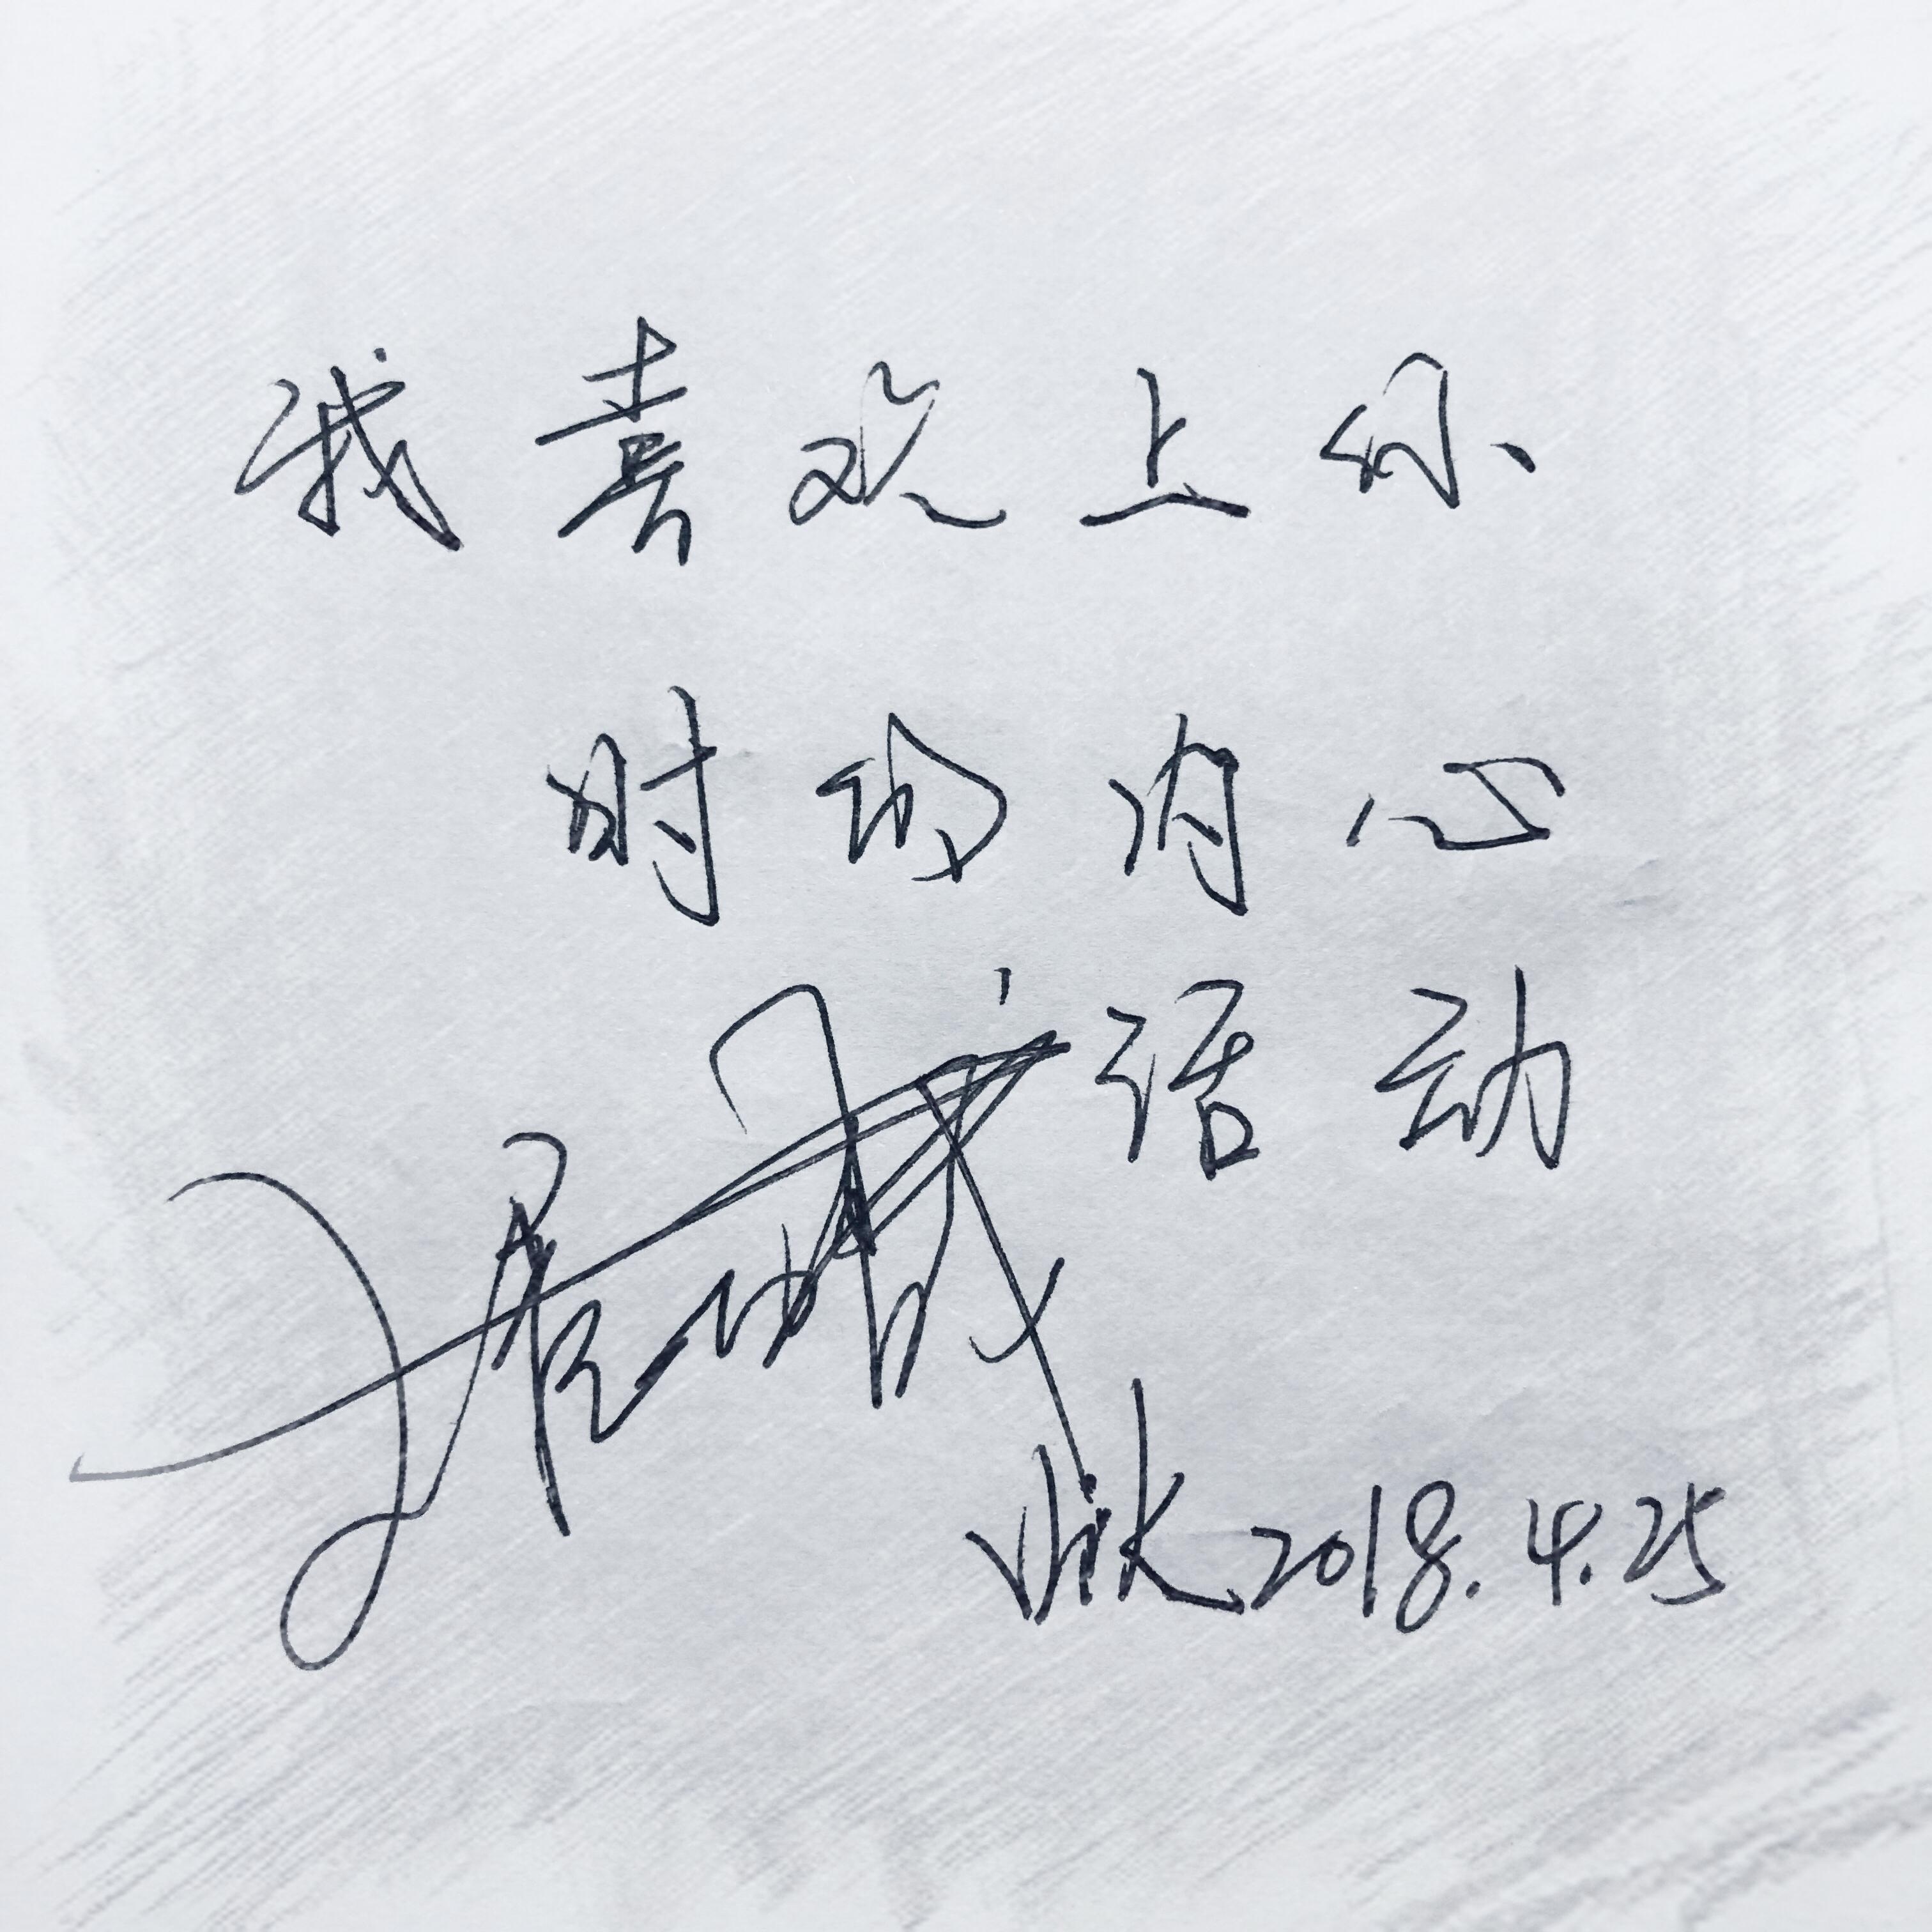 我喜欢上你
时的内心
活动
2018.4.25